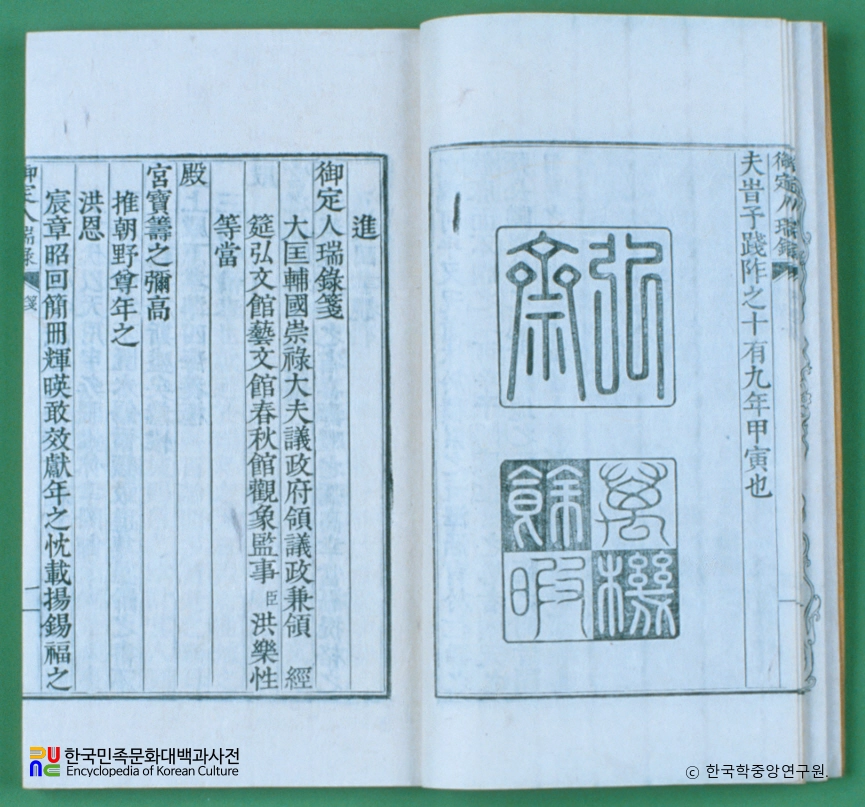 御定人瑞錄
夫旹予踐阼之十有九年甲寅也
弘齋
萬機餘暇
進
御定人瑞錄箋
大匡輔國崇祿大夫議政府領議政兼領 經
筵弘文館藝文館春秋館觀象監事臣洪樂性
等當
殿
宮寶籌之彌高
推朝野尊年之
洪恩
宸章昭回簡冊輝暎敢效獻年之忱載揚錫福之
御定人瑞錄 箋 二
한국민족문화대백과사전
Encyclopedia of Korean Culture
© 한국학중앙연구원.